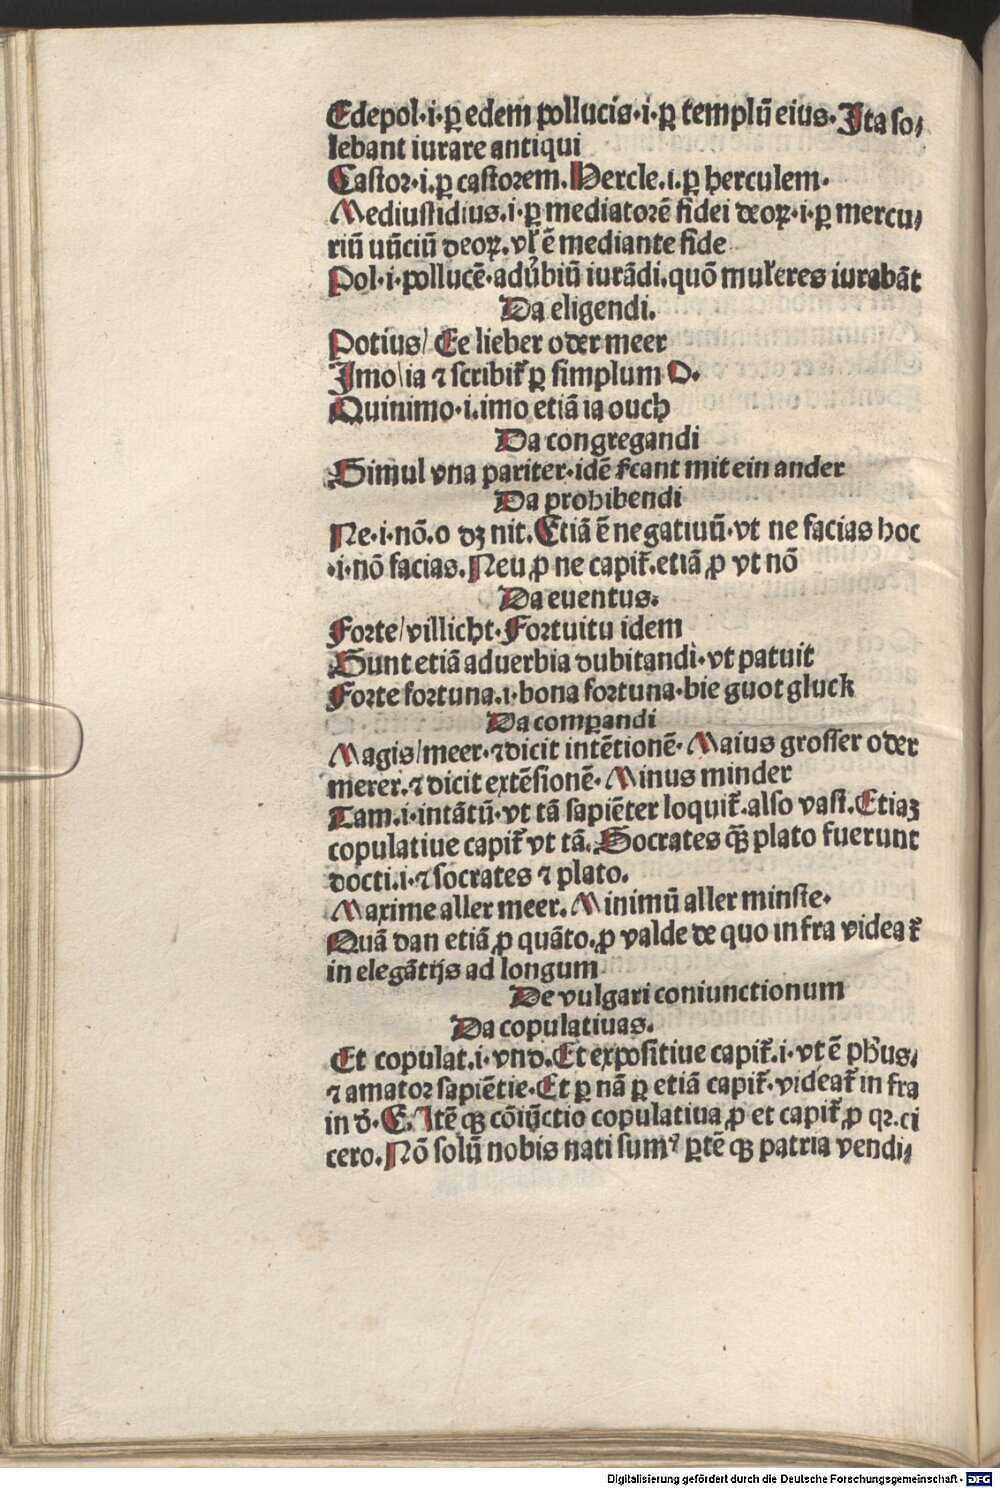 Edepol·i·ꝑ edem pollucis·i·ꝑ templū eius·Ita so⸗
lebant iurare antiqui
Castor·i.ꝑ castorem.Hercle.i.ꝑ herculem·
Mediusfidius.i·ꝑ mediatorē fidei deoꝝ·i·ꝑ mercu⸗
riū nūciū deoꝝ.vl̓ ē mediante fide
Pol·i·pollucē·aduͦbiū iurādi.quō mul̓eres iurabāt
Da eligendi.
Potius/ Ee lieber oder meer
Imo/ia ⁊ scribit᷑ ꝑ simplum O.
Quinimo·i.imo etiā ia ouch
Da congregandi
Simul vna pariter·idē sc̄ant mit ein ander
Da prohibendi
Ne·i·nō.o dꝫ nit.Etiā ē negatiuū·vt ne facias hoc
·i·nō facias.Neu ꝓ ne capit᷑.etiā ꝓ vt nō
Da euentus.
Forte/villicht·Fortuitu idem
Sunt etiā aduerbia dubitandi·vt patuit
Forte fortuna.i·bona fortuna·bie guot gluck
Da comꝑandi
Magis/meer·⁊dicit intētionē·Maius grosser oder
merer.⁊ dicit extēsionē·Minus minder
Tam.i·intātū·vt tā sapiēter loquit᷑.also vast.Etiaꝫ
copulatiue capit᷑ vt tā.Socrates qꝫ̄ plato fuerunt
docti.i·⁊ socrates ⁊ plato.
Maxime aller meer.Minimū aller minste·
Quā dan etiā ꝓ quāto.ꝓ valde de quo infra videat᷑
in elegātijs ad longum
De vulgari coniunctionum
Da copulatiuas.
Et copulat.i·vnd.Et expositiue capit᷑.i·vt ē ph̓us⸗
⁊ amator sapiētie·Et ꝑ nā ꝑ etiā capit᷑·videat᷑ in fra
in d̓·E.Itē qꝫ cōiūctio copulatiua ꝓ et capit᷑ ꝓ qꝛ.ci
cero.Nō solū nobis nati sumꝰ ꝑtē qꝫ patria vendi⸗
Digitalisierung gefördert durch die Deutsche Forschungsgemeinschaft - DFG